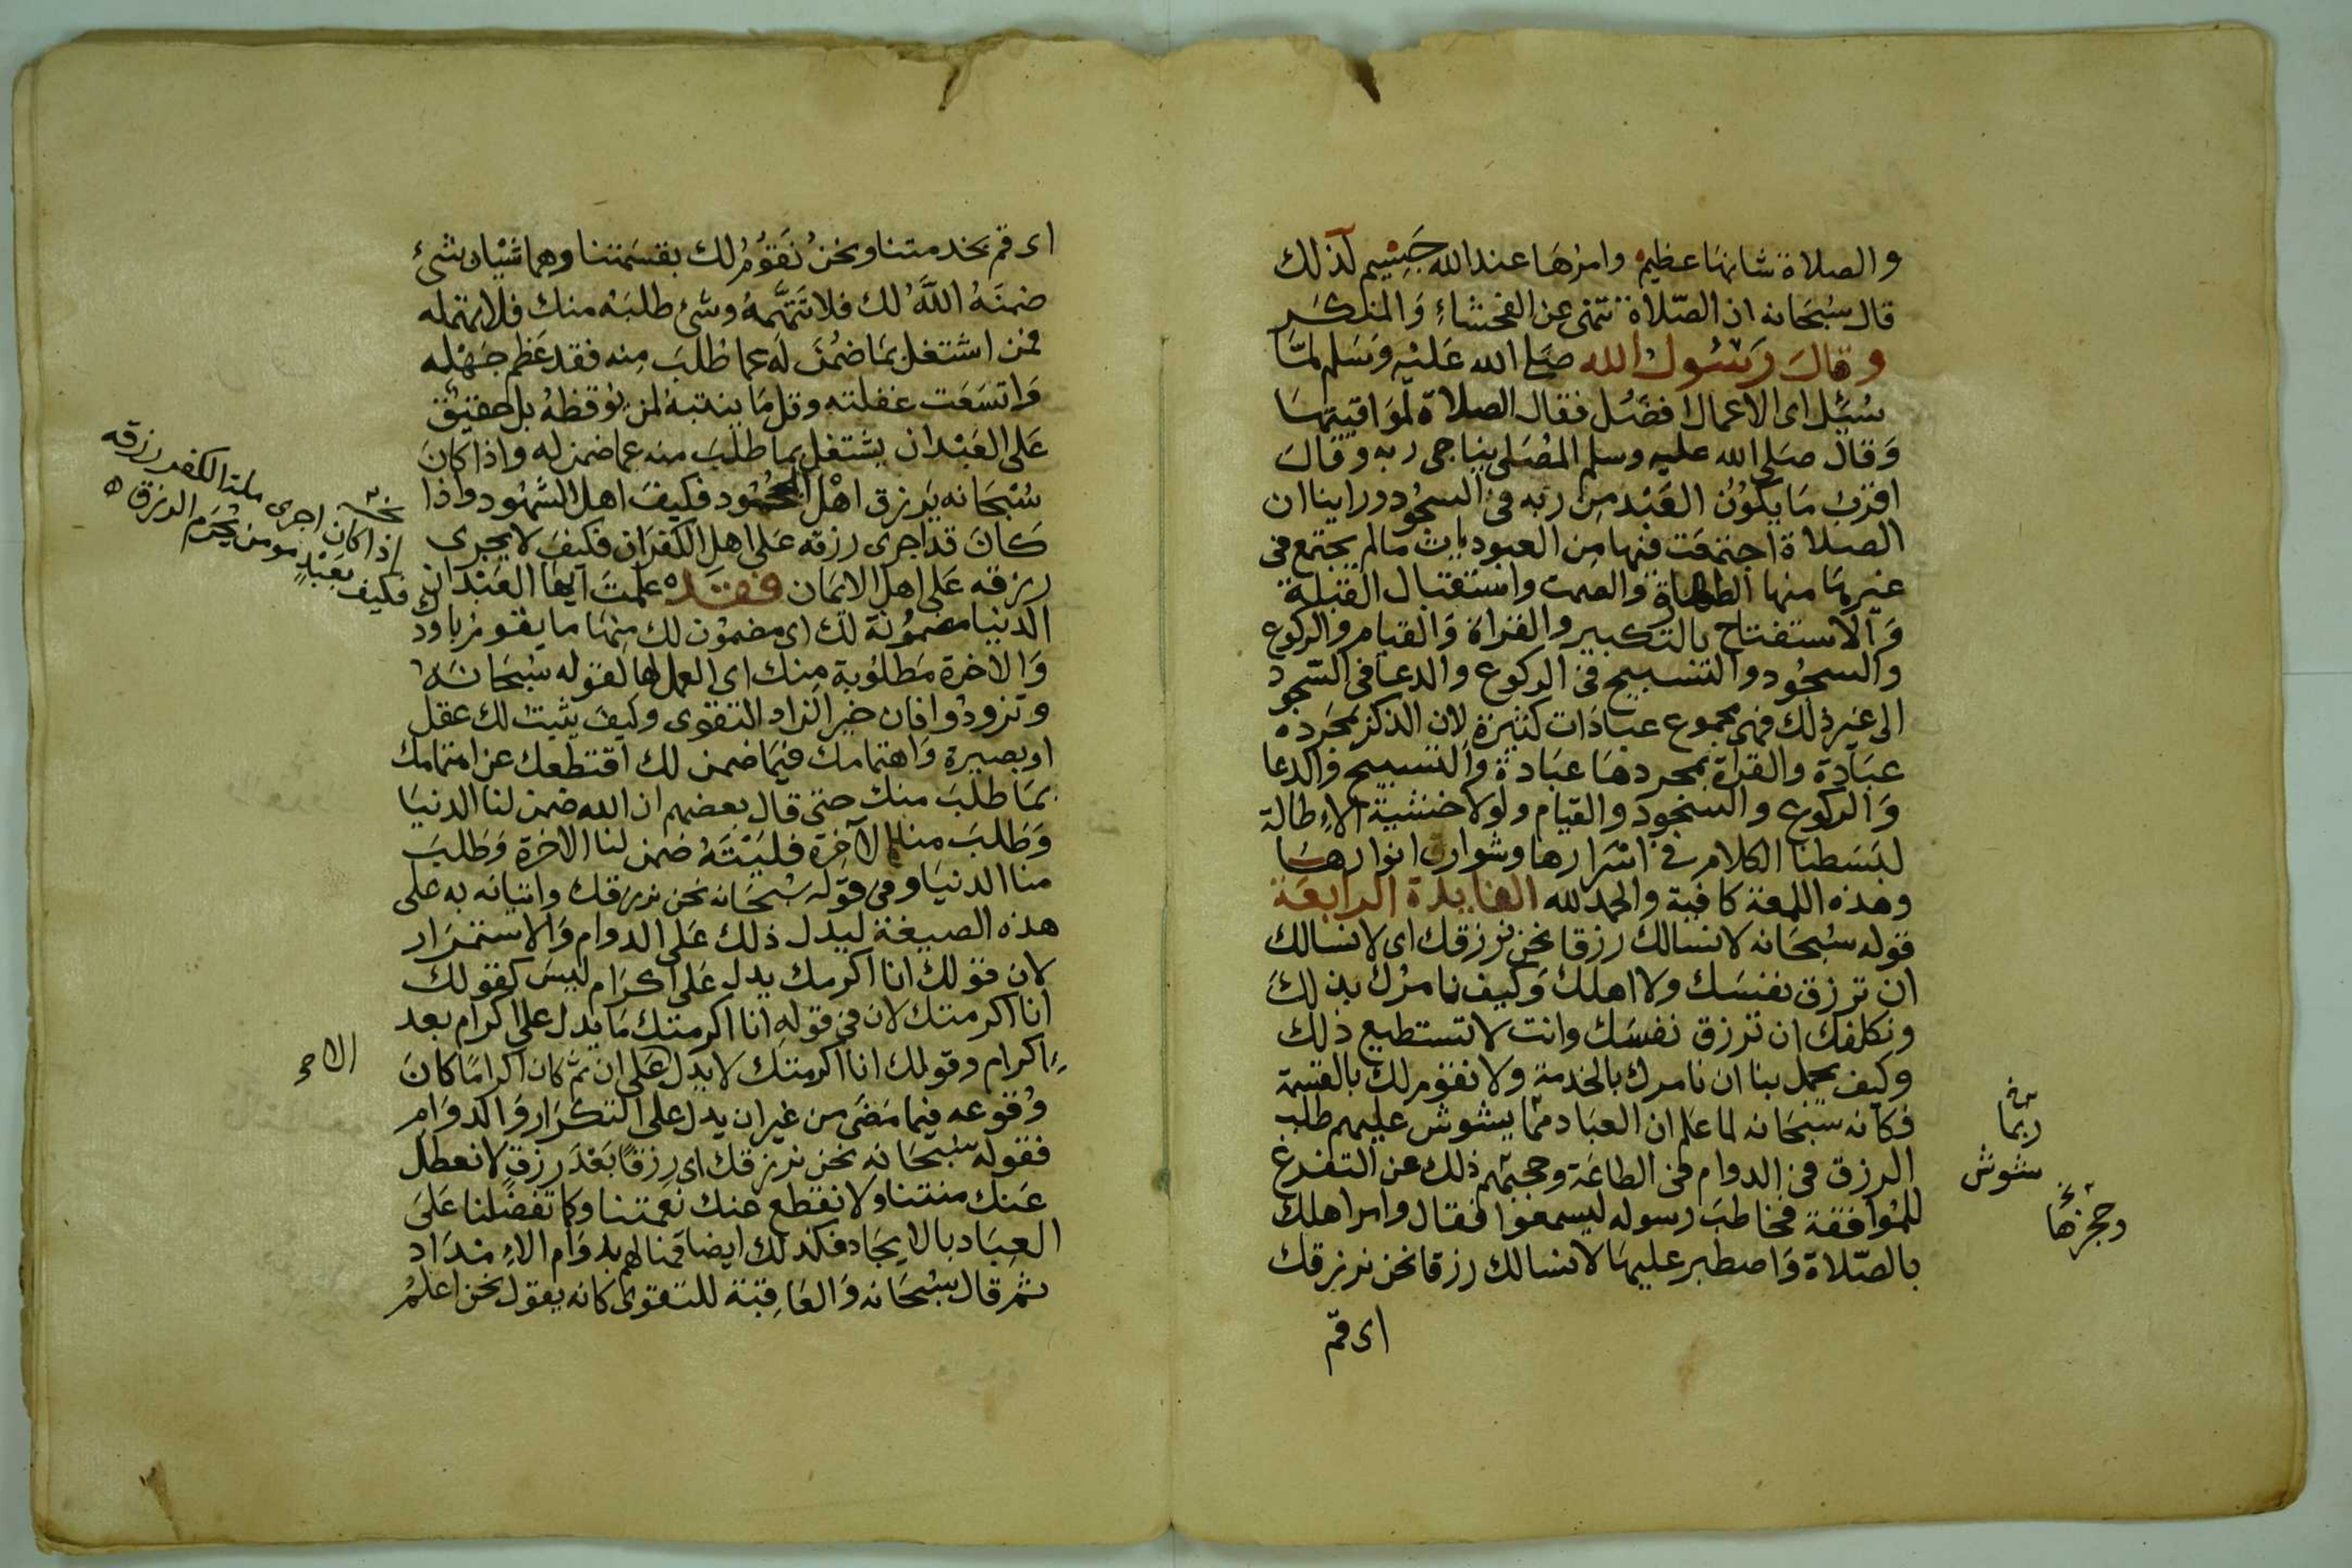 والصلاة شانها عظيم وامرها عند الله جسيم لذلك
قال سبحانه ان الصلاة تنهى عن الفحشاء والمنكر
وقال رسول الله صلى الله عليه وسلم لما
سئل اى الاعمال افضل فقال الصلاة لمواقيتها
وقال صلى الله عليه وسلم المصلى يناجى ربه وقال
اقرب ما يكون العبد من ربه فى السجود وراينا ان
الصلاة اجتمعت فيها من العبوديات مالم يجتمع فى
غيرها منها الطهارة والصمت واستقبال القبلة
والاستفتاح بالتكبير والقراة والقيام والركوع
والسجود والتسبيح فى الركوع والدعا فى السجود
الى غير ذلك فهى مجموع عبادات كثيرة لان الذكر بمجرده
عبادة والقراة بمجردها عبادة والتسبيح والدعا
والركوع والسجود والقيام ولولا خشية الإطالة
لبسطنا الكلام فى اسرارها وشوارق انوارها
وهذه اللمعة كافية والحمد لله الفايدة الرابعة
قوله سبحانه لا نسالك رزقا نحن نرزقك اى لا نسالك
ان ترزق نفسك ولا اهلك وكيف نامرك بذلك
ونكلفك ان ترزق نفسك وانت لا تستطيع ذلك
وكيف يجمل بنا ان نامرك بالخدمة ولا نقوم لك بالقسمة
فكانه سبحانه لما علم ان العباد مما يشوش عليهم طلب
الرزق فى الدوام فى الطاعة وحجبهم ذلك عن التفرغ
للموافقة فخاطب رسوله ليسمعوا فقال وامر اهلك
بالصلاة واصطبر عليها لا نسالك رزقا نحن نرزقك
اى قم
ربما
شوش
اى قم بخدمتنا ونحن نقوم لك بقسمتنا وهما شيان شىء
ضمنه الله لك فلا تتهمه وشئ طلبه منك فلا تهمله
فمن اشتغل بما ضمن له عما طلب منه فقد عظم جهله
واتسعت غفلته وقل ما ينتبه لمن يوقظه بل حقيق
على العبد ان يشتغل بما طلب منه عما ضمن له واذا كان
سبحانه يرزق اهل الجحود فكيف اهل الشهود واذا
كان قد اجرى رزقه على اهل الكفران فكيف لا يجرى
رزقه على اهل الايمان فقد علمت ايها العبد ان
الدنيا مضمونة لك اى مضمون لك منها ما يقوم باودك
والاخرة مطلوبة منك اى العمل لها لقوله سبحانه
وتزودوا فان خير الزاد التقوى وكيف يثبت لك عقل
او بصيرة واهتمامك فيما ضمن لك اقتطعك عن اهتمامك
بما طلب منك حتى قال بعضهم ان الله ضمن لنا الدنيا
وطلب منا الآخرة فليته ضمن لنا الاخرة وطلب
منا الدنيا وفى قوله سبحانه نحن نرزقك واتيانه به على
هذه الصيغة ليدل ذلك على الدوام والاستمرار
لان قولك انا اكرمك يدل على اكرام ليس كقولك
انا اكرمتك لان فى قوله انا اكرمتك ما يدل على اكرام بعد
اكرام وقولك انا اكرمتك لا يدل على ان ثم كان اكراما كان
وقوعه فيما مضى من غير ان يدل على التكرار والدوام
فقوله سبحانه نحن نرزقك اى رزقا بعد رزق لا نعطل
عنك منتنا ولا نقطع عنك نعمتنا وكما تفضلنا على
العباد بالايجاد فكذلك ايضا قمنا لهم بدوام الإمداد
ثم قال سبحانه والعاقبة للتقوى كانه يقول نحن اعلم
اذا كان اجرى ملة الكفر رزقه
فكيف بعبد مومن يحرم الرزق